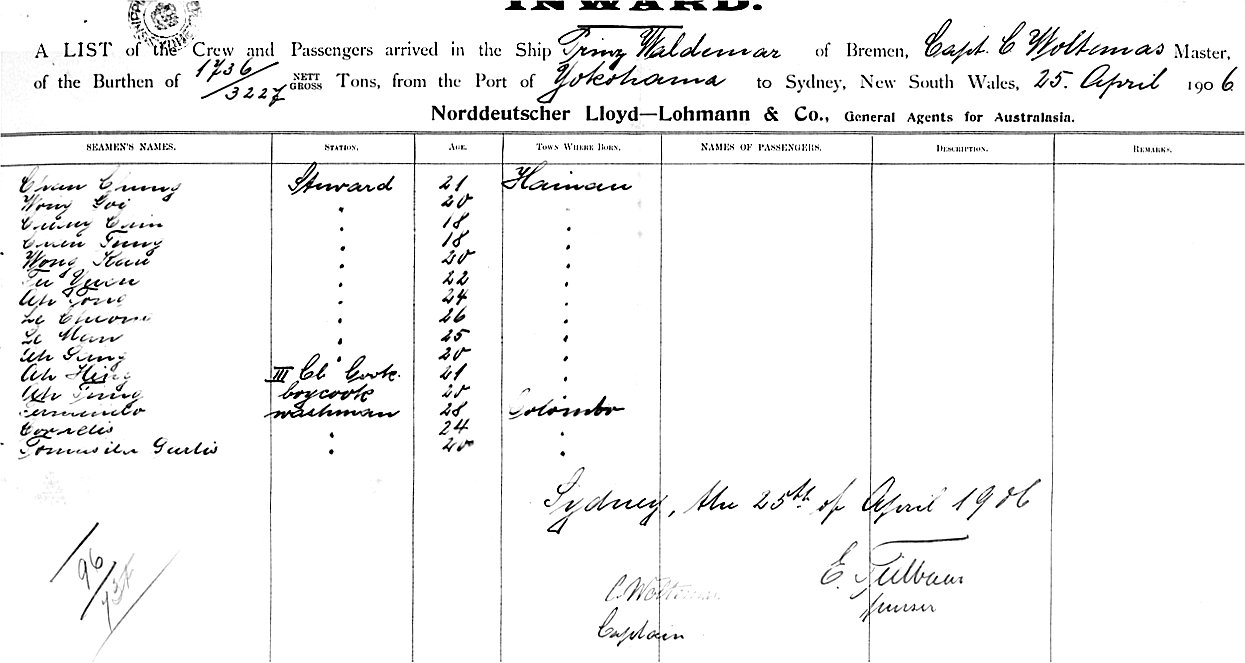 INWARD.
A LIST of the Crew and Passengers arrived in the Ship Prinz Waldemar of Bremen, Capt. C Woltemas Master,
of the Burthen of 1736/3227 NETT GROSS Tons, from the Port of Yokohama to Sydney, New South Wales, 25. April 1906
Norddeutscher Lloyd—Lohmann & Co., General Agents for Australasia.
SEAMEN'S NAMES. STATION. AGE. TOWN WHERE BORN. NAMES OF PASSENGERS. DESCRIPTION. REMARKS.
Chan Chung Steward 21 Hainan
Wong Goi " 20 "
18 "
Tung " 18 "
Wong Kau " 20 "
Yuen " 22 "
Ah Tong " 24 "
Le " 26 "
Le Man " 25 "
Ah " 20 "
Ah Hing III Cl Cook 21 "
Ah Tung boycook 20 "
Fernando washman 28 Colombo
Cornelis " 24 "
" 20 "
Sydney, the 25th of April 1906
96
C Woltemas
E.
Captain
purser